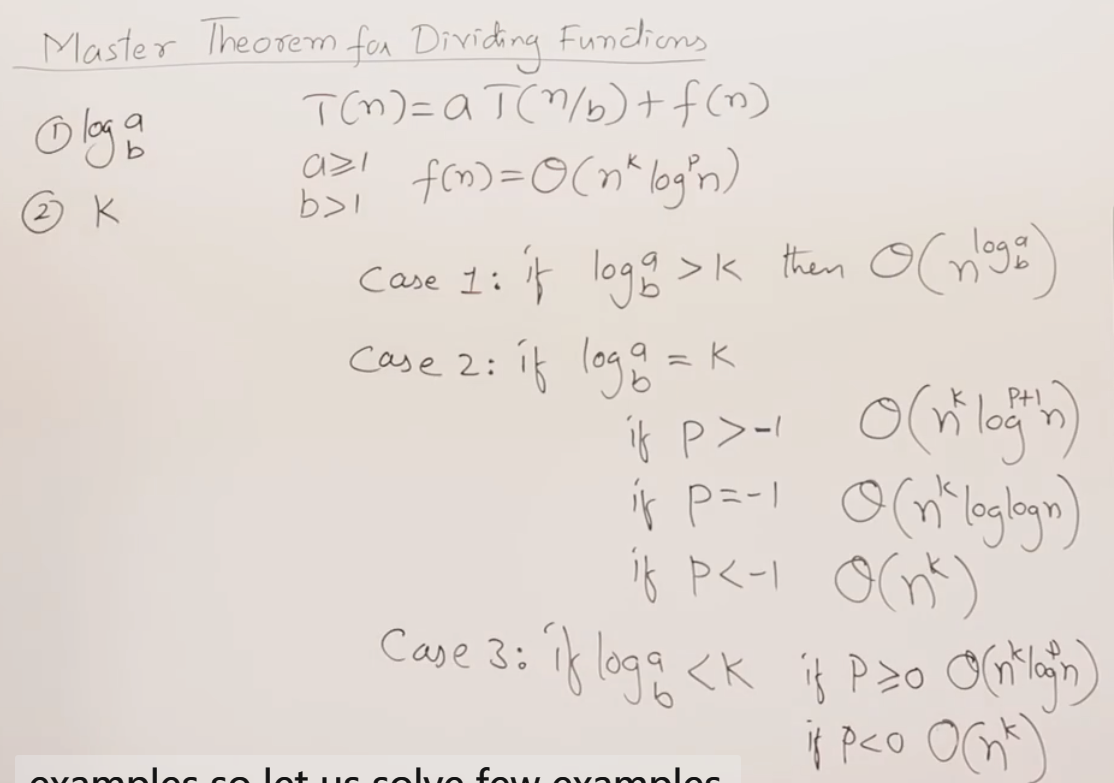 Master Theorem for Dividing Functions
① log_b^a
② K
T(n) = a T(n/b) + f(n)
a≥1
b>1
f(n) = Θ(n^k log^p n)
Case 1: if log_b^a > K then Θ(n^{log_b^a})
Case 2: if log_b^a = K
if P > -1 Θ(n^k log^{P+1} n)
if P = -1 Θ(n^k loglogn)
if P < -1 Θ(n^k)
Case 3: if log_b^a < K if P ≥ 0 Θ(n^k log^p n)
if P < 0 O(n^k)
examples so let us solve few examples